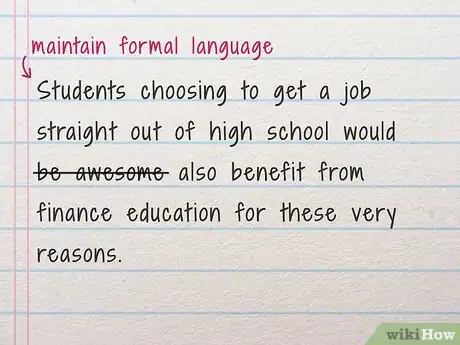 maintain formal language
Students choosing to get a job
straight out of high school would
be awesome also benefit from
finance education for these very
reasons.
wikiHow